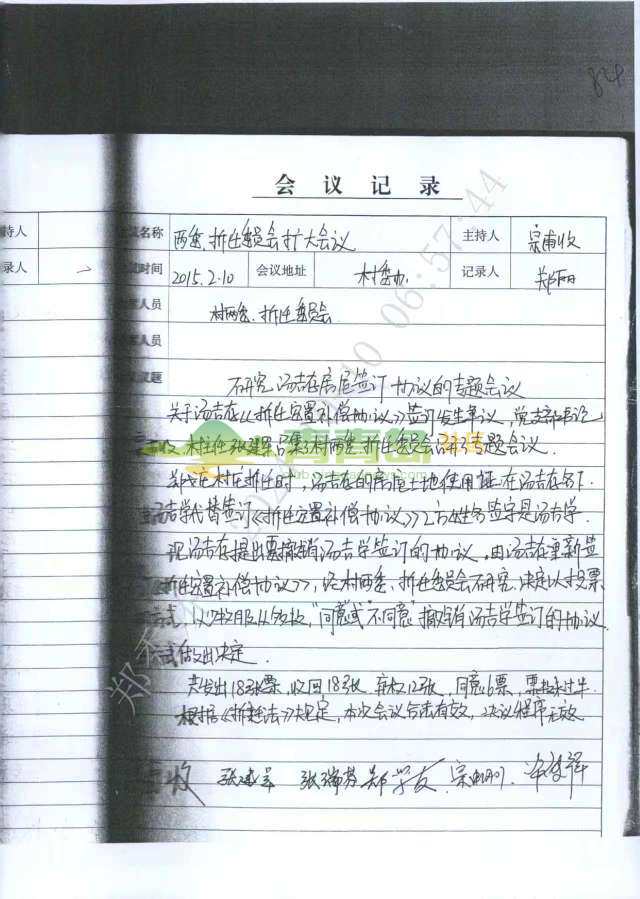 84
会 议 记 录
持人
议名称
两委、拆迁委员会扩大会议
主持人
宗甫收
录人
议时间
2015.2.10
会议地址
村委办
记录人
郑丽
人员
村两委、拆迁委员会
人员
议题
研究汤吉在房屋签订协议的专题会议
关于汤吉在《拆迁安置补偿协议》签订发生争议，党支部书记
村主任张建军召集村两委拆迁委员会召开专题会议．
郑戈庄村在拆迁时，汤吉在的房屋土地使用证在汤吉在名下．
汤吉学代替签订《拆迁安置补偿协议》乙方姓名签字是汤吉学
现汤吉在提出要撤销汤吉学签订的协议，由汤吉在重新签
《拆迁安置补偿协议》，经村两委、拆迁委员会研究，决定以投票
方式，以少数服从多数，"同意或"不同意"撤销汤吉学签订的协议
做出决定．
共发出18张票，收回18张 弃权12张，同意6票，票数未过半
根据《拆迁法》规定，本次会议合法有效，决议程序无效
收 张建军 张瑞芳 郑学友
06:57:44